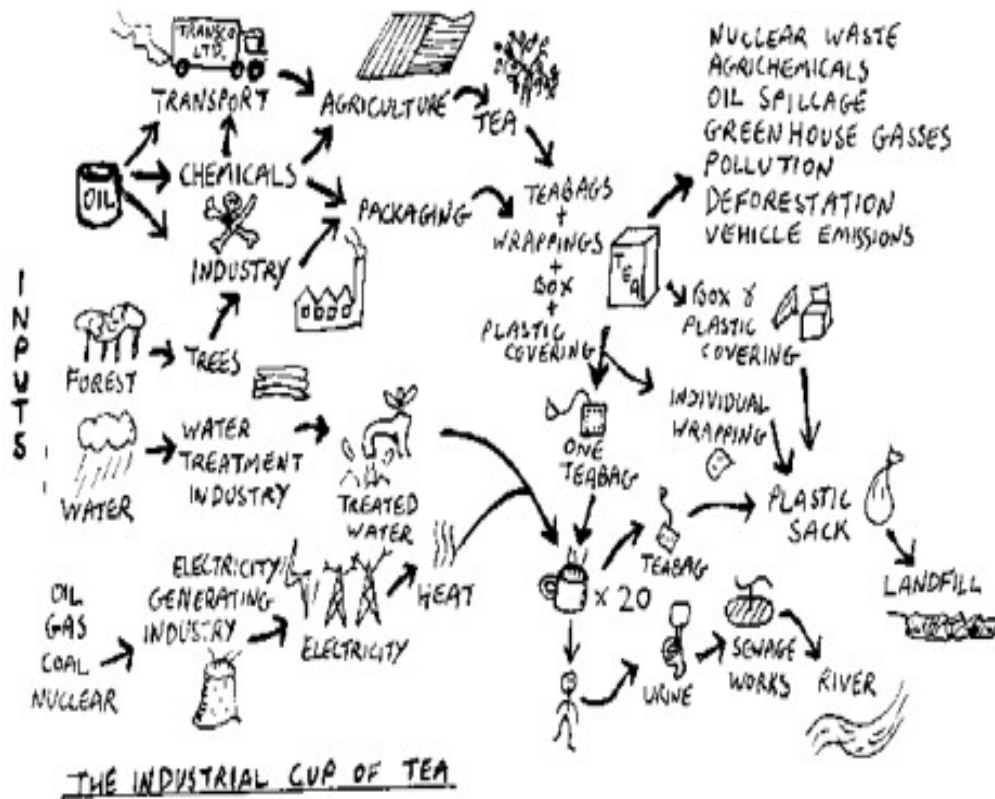 TRANSCO
LTD.
TRANSPORT
AGRICULTURE
TEA
NUCLEAR WASTE
AGRICHEMICALS
OIL SPILLAGE
GREENHOUSE GASSES
POLLUTION
DEFORESTATION
VEHICLE EMISSIONS
OIL
CHEMICALS
INDUSTRY
PACKAGING
TEABAGS
+
WRAPPINGS
+
BOX
+
PLASTIC
COVERING
TEA
BOX &
PLASTIC
COVERING
INPUTS
FOREST
TREES
INDIVIDUAL
WRAPPING
ONE
TEABAG
WATER
WATER
TREATMENT
INDUSTRY
TREATED
WATER
PLASTIC
SACK
TEABAG
LANDFILL
OIL
GAS
COAL
NUCLEAR
ELECTRICITY
GENERATING
INDUSTRY
ELECTRICITY
HEAT
x 20
URINE
SEWAGE
WORKS
RIVER
THE INDUSTRIAL CUP OF TEA